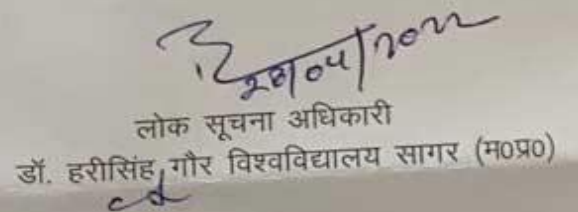 28/04/2022
लोक सूचना अधिकारी
डॉ. हरीसिंह गौर विश्वविद्यालय सागर (म०प्र०)